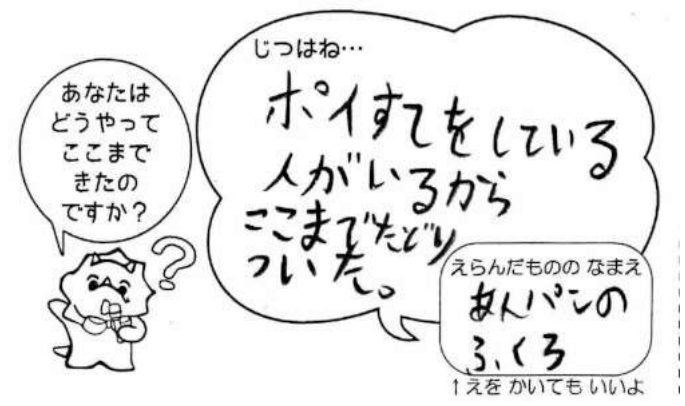 あなたは
どうやって
ここまで
きたの
ですか？
?
じつはね…
ポイすてをしている
人がいるから
ここまでたどり
ついた。
えらんだものの なまえ
あんパンの
ふくろ
↑えを かいても いいよ